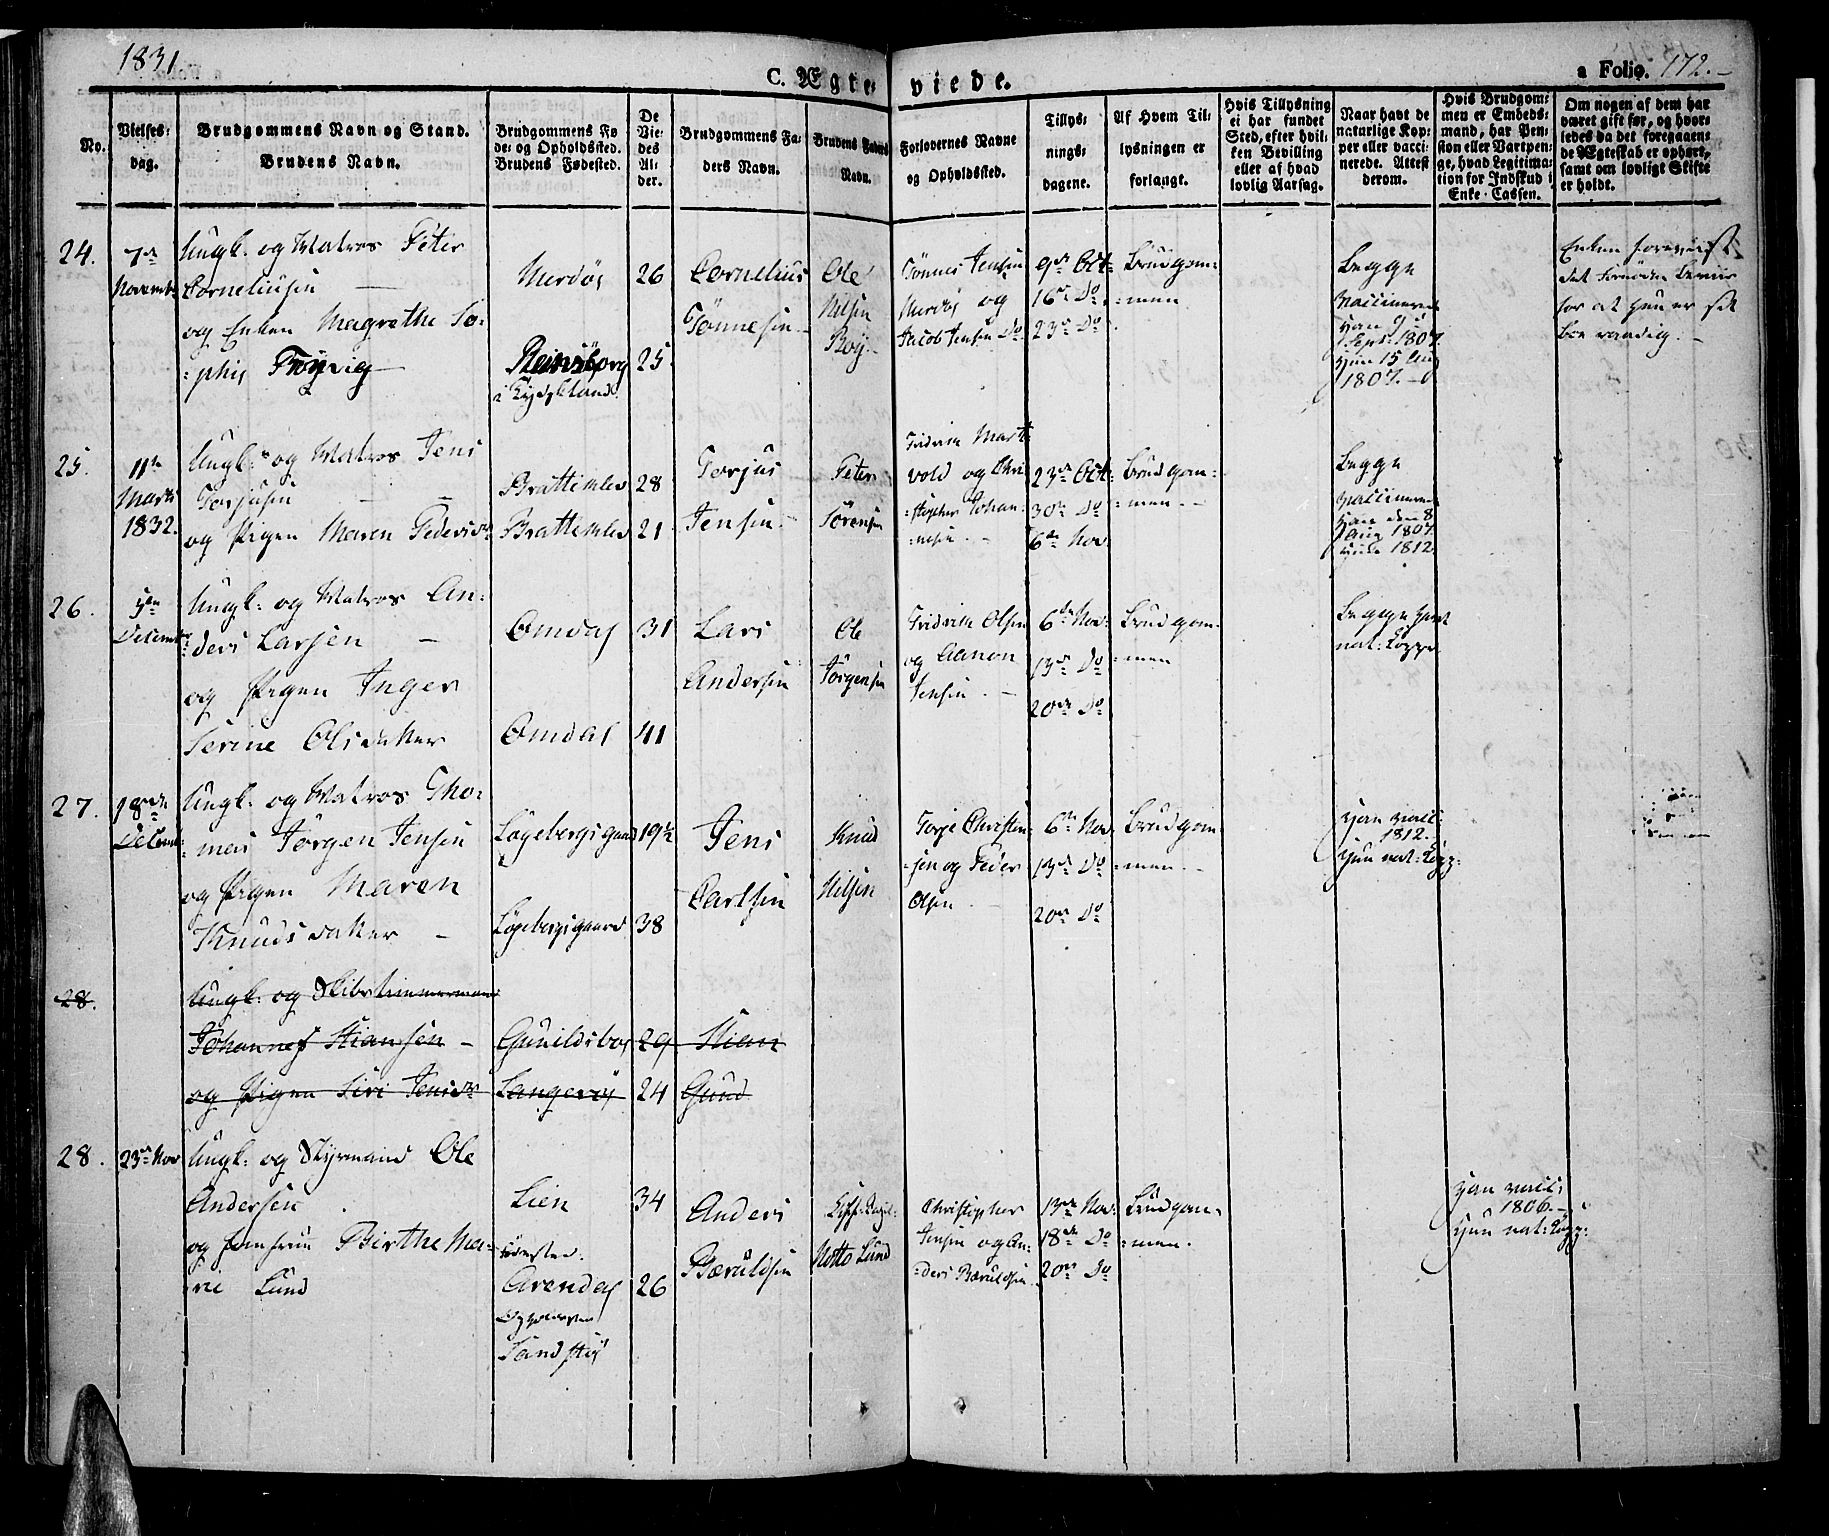 1831
C. Ægte-viede.
a Folio. 172.
No.
Vielses-dag.
Brudgommens Navn og Stand.
Brudens Navn.
Brudgommens Fø-
de- og Opholdssted.
Brudens Fødested.
De Vie-des Al-der.
Brudgommens Fa-
ders Navn.
Brudens Faders
Navn.
Forlovernes Navne
og Opholdssted.
Tillys-
nings-
dagene.
Af Hvem Til-
lysningen er
forlangt.
Hvis Tillysning
ei har fundet
Sted, efter hvil-
ken Bevilling
eller af hvad
lovlig Aarsag.
Naar havt de
naturlige Kop-
per eller vacci-
nerede. Attest
derom.
Hvis Brudgom-
men er Embeds-
mand, har Pen-
sion eller Vartpen-
ge, hvad Legitima-
tion for Indskud i
Enke-Cassen.
Om nogen af dem har
været gift før, og hvor-
ledes da det foregaaen-
de Ægteskab er ophørt,
samt om lovligt Skifte
er holdt.
24.
7de
Novembr
Ungk. og Matros Peter
Corneliusen
og Enken Magrethe So-
phie Frövig
Merdöe
26
25
i Tydskland
Cornelius
Tönnesen
Ole
Nilsen
Boij
Tönnes Jensen
Merdöe og
Jacob Jensen Do
9de Oct
16de Do
23de Do
Brudgom-
men
Begge
vaccinerede
han 9
Sept. 1807.
hun 15 Aug
1807.
Enken foreviist
det fornödne Beviis
for at hun er
25.
11te
Marts
1832.
Ungk: og Matros Jens
Torjusen
og Pigen Maren Peders dr
Bratteklev
28
Bratteklev
21
Torjus
Jensen
Peter
Sörensen
Fridrik Mart
vold og Chri
stopher Johan-
nesen
23de Oct
30te Do
6te Nov
Brudgom-
men
Begge
vaccinerede
han den 8
Aug 1807.
hun 1812.
26.
5te
Decembr
Ungk: og Matros An-
ders Larsen
og Pigen Inger
Serine Olsdatter
Omdal
31
Omdal
41
Lars
Andersen
Ole
Jörgensen
Fridrik Olsen
og Aanon
Jensen
6te Nov
13de Do
20de Do
Brudgom-
men
Begge havt
nat: Kopper
27.
18de
Decemb
Ungk: og Matros Tho-
mas Jörgen Jensen
og Pigen Maren
Knudsdatter
Lögebergsgaard
19½
Lögebergsgaard
38
Jens
Carlsen
Knud
Nilsen
Torje Christen-
sen og Peder
Olsen
6te Nov
13de Do
20de Do
Brudgom-
men
han vacc:
1812.
hun nat: Kopp:
28.
Ungk: og Skibstimmermand
Johannes Stiansen
og Pigen Siri Jensdr
Gunildsboe
29
Langeröe
24
Stian
Gund
28.
23de Nov
Ungk: og Styrmand Ole
Andersen
og Jomfrue Birthe Ma-
rie Lund
Lien
34
Arendal
26
Anders
Bæruldsen
Notto Lund
Christopher
Jensen og An-
ders Bæruldsen
13de Nov
18de Do
20de Do
Brudgom-
men.
han vacc:
1806.
hun nat: Kopp: